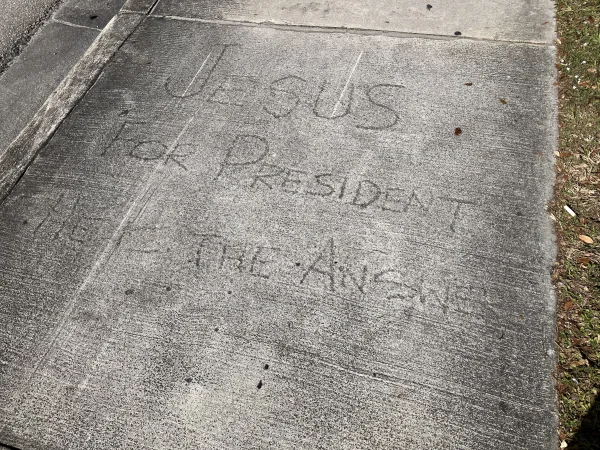 JESUS
FOR PRESIDENT
HE THE ANSWE